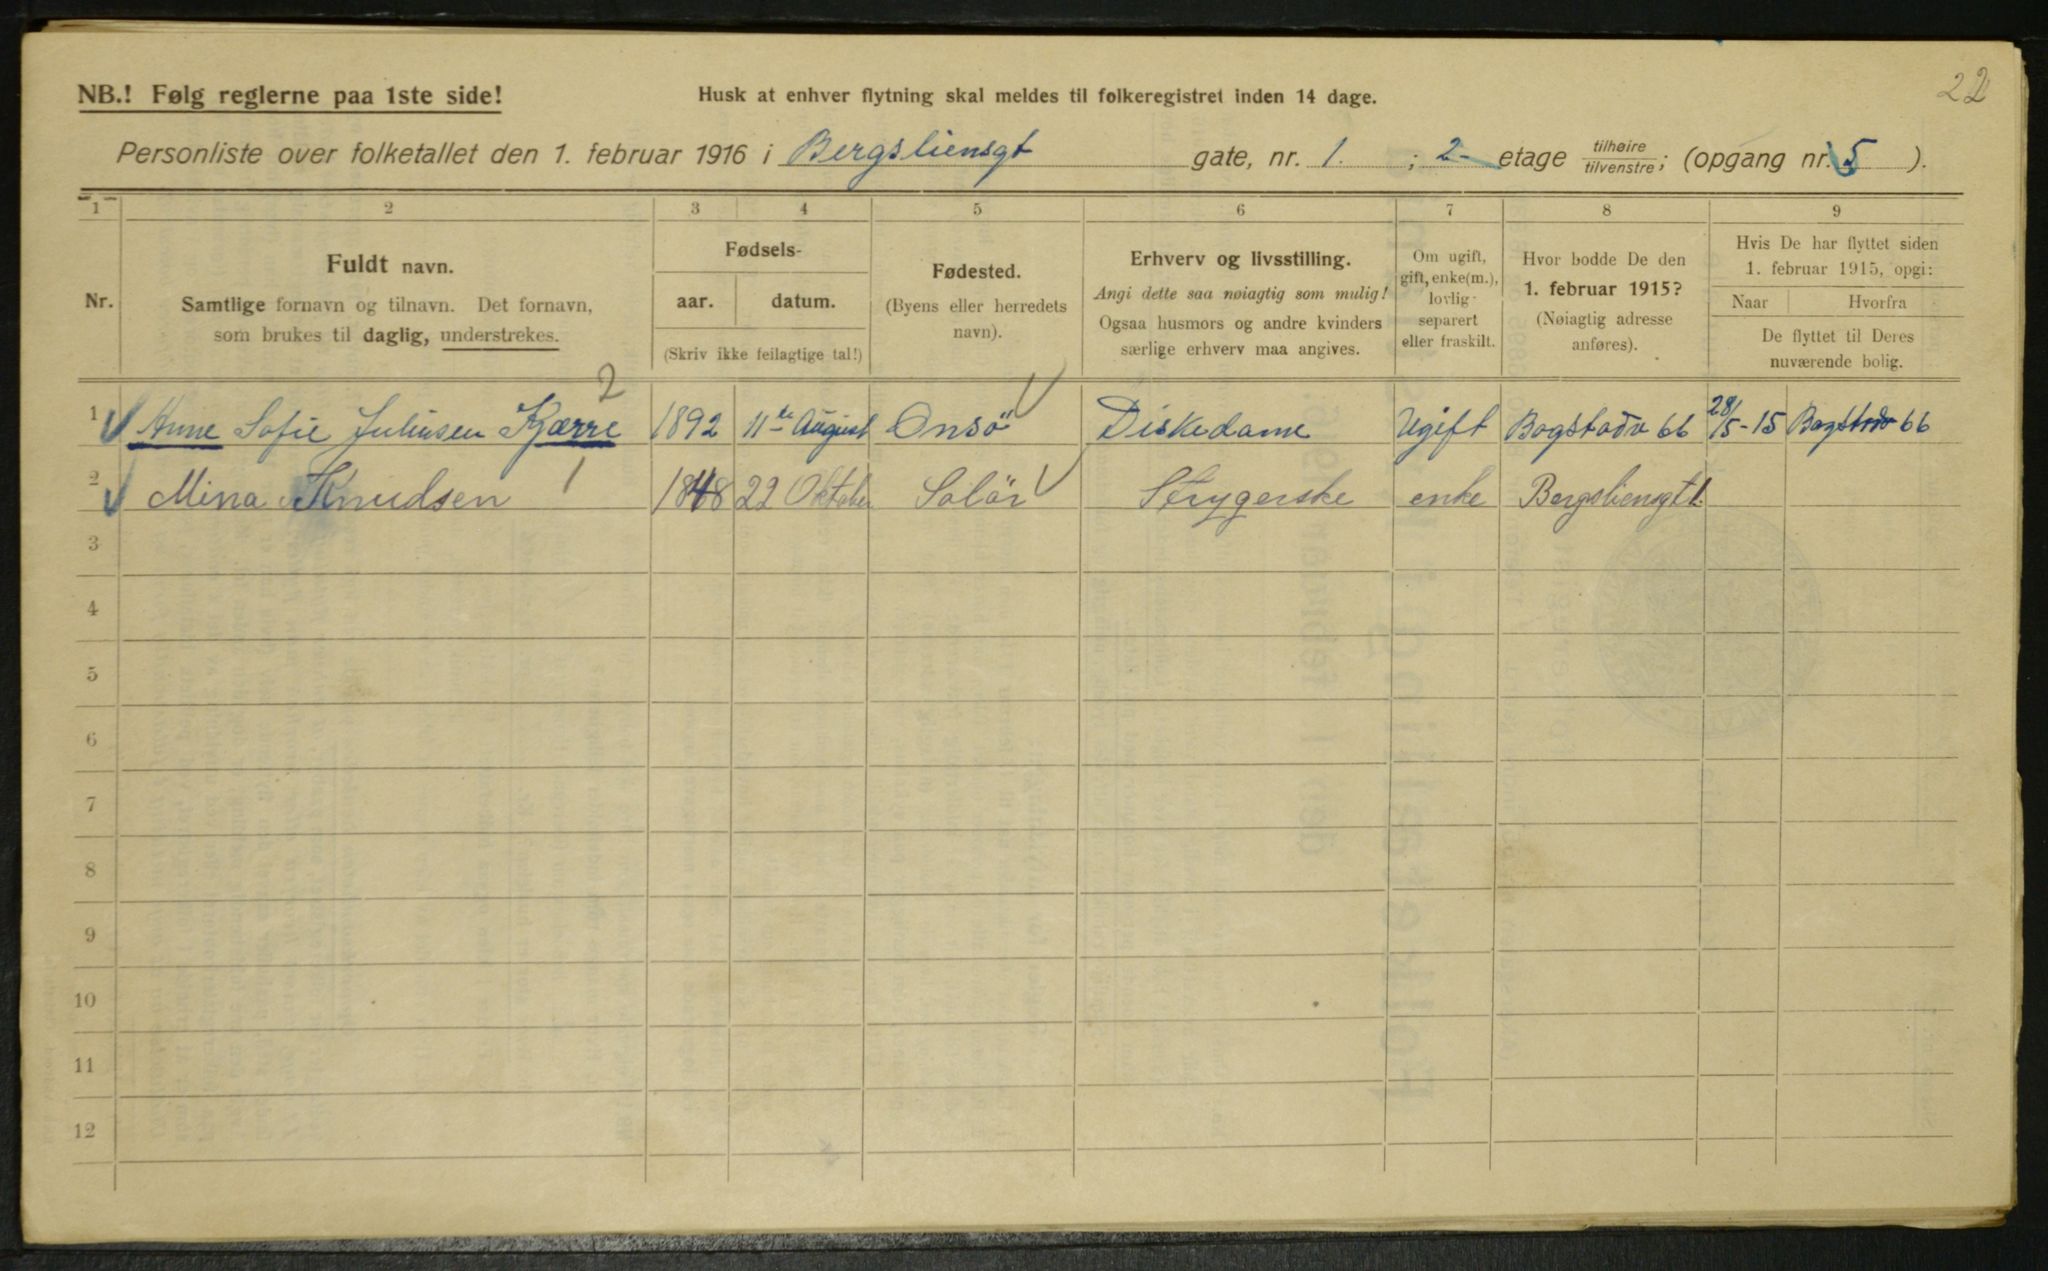 22
NB.! Følg reglerne paa 1ste side!
Husk at enhver flytning skal meldes til folkeregistret inden 14 dage.
Personliste over folketallet den 1. februar 1916 i Bergsliensgt gate, nr. 1. ; 2- etage tilhøire/tilvenstre; (opgang nr. 5 ).
1 2 3 4 5 6 7 8 9
Nr.
Fuldt navn.
Samtlige fornavn og tilnavn. Det fornavn,
som brukes til daglig, understrekes.
Fødsels-
aar. datum.
(Skriv ikke feilagtige tal!)
Fødested.
(Byens eller herredets
navn).
Erhverv og livsstilling.
Angi dette saa nøiagtig som mulig!
Ogsaa husmors og andre kvinders
særlige erhverv maa angives.
Om ugift,
gift, enke(m.),
lovlig
separert
eller fraskilt.
Hvor bodde De den
1. februar 1915?
(Nøiagtig adresse
anføres).
Hvis De har flyttet siden
1. februar 1915, opgi:
Naar Hvorfra
De flyttet til Deres
nuværende bolig.
2
1 Anne Sofie Juliusen Kjærre 1892 11te August Onsö Diskedame Ugift Bogstadv 66 28/5-15 Bogstadv 66
2 Mina Knudsen 1 1848 22 Oktober Solör Strygerske enke Bergsliensgt 1.
3
4
5
6
7
8
9
10
11
12